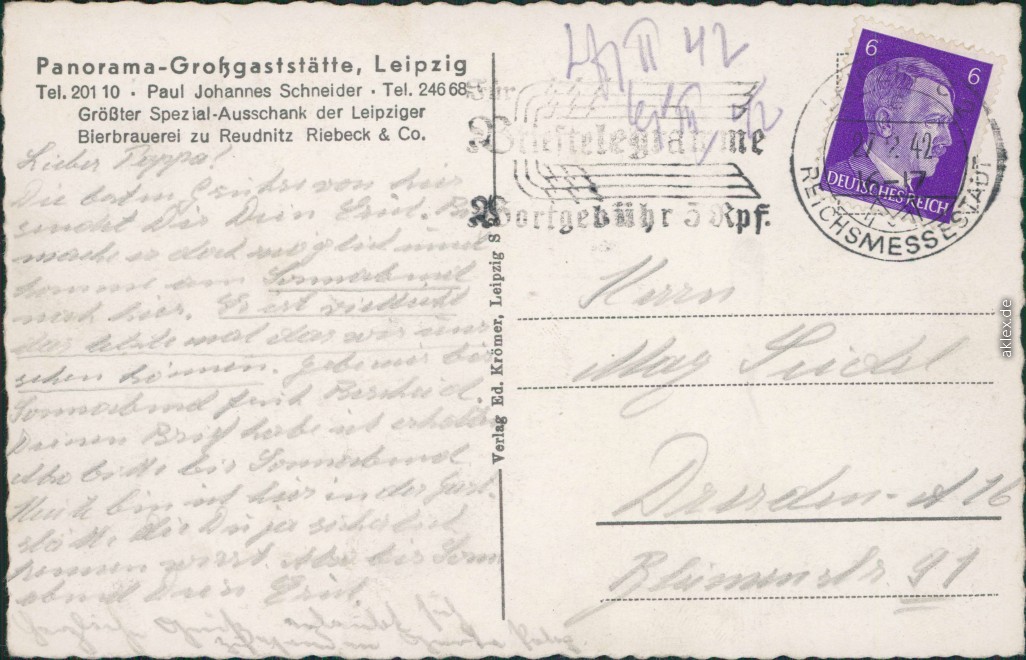 Panorama-Großgaststätte, Leipzig
Tel. 201 10 · Paul Johannes Schneider · Tel. 246 68
Größter Spezial-Ausschank der Leipziger
Bierbrauerei zu Reudnitz Riebeck & Co.
Lieber Pappa!
Die besten von hier
sendet Dir Dein
mache es doch möglich und
komme am Sonnabend
nach hier. Es ist vielleicht
das letzte mal das wir uns
sehen können. gebe mir bis
Sonnabend früh Bescheid.
Deinen Brief habe ich erhalten
Also bitte bis Sonnabend
Heute bin ich hier in der Gast-
stätte die Du ja sicherlich
kennen wirst. Also bis Sonn
abend Dein
Verlag Ed. Krömer, Leipzig S
II 42
Für
Brieftelegramme
Wortgebühr 5 Rpf.
6 6
DEUTSCHES REICH
42
16-17
REICHSMESSESTADT
Herrn
Max Seidel
Dresden-A 16
Blumenstr 91
aklex.de